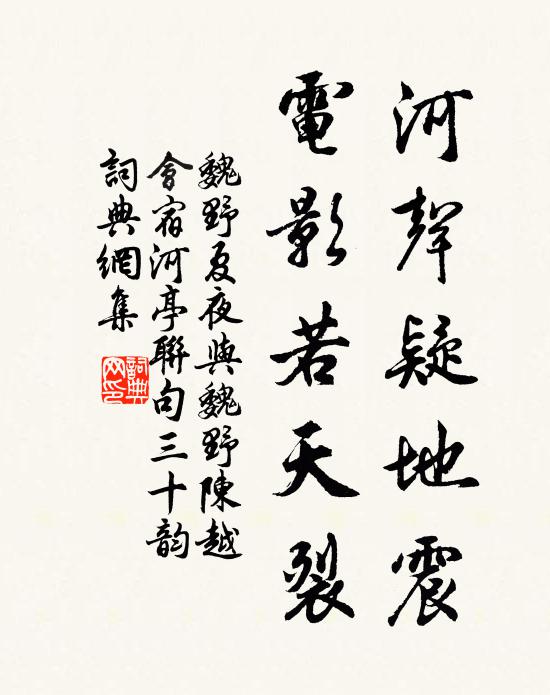 河聲疑地震
電影若天裂
魏野夏夜與魏野陳越
會宿河亭聯句三十韵
詞典網集
詞典
网印